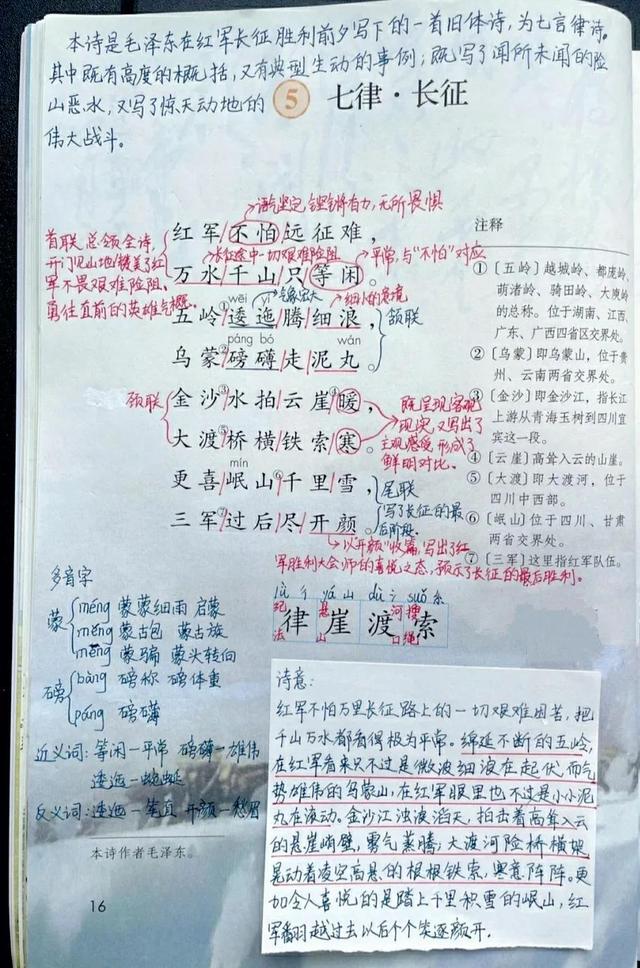 本诗是毛泽东在红军长征胜利前夕写下的一首旧体诗,为七言律诗。
其中既有高度的概括,又有典型生动的事例;既写了闻所未闻的险
山恶水,又写了惊天动地的
伟大战斗。
5 七律·长征
语气坚定,铿锵有力,无所畏惧
首联总领全诗,
开门见山地赞美了红
军不畏艰难险阻,
勇往直前的英雄气概。
红军/不怕/远征难,
长征途中一切艰难险阻
平常,与“不怕”对应
万水/千山/只/等闲。
wēi yí
气象宏大
细小的意境
五岭①/逶迤/腾/细浪,
颔联
páng bó wán
乌蒙②/磅礴/走/泥丸。
颈联
金沙③/水拍/云崖④/暖,
大渡⑤/桥横/铁索/寒。
既呈现客观
现实,又写出了
主观感受,形成了
鲜明对比。
mín
更喜/岷山⑥/千里雪,
三军⑦/过后/尽/开颜。
尾联
写了长征的最
后阶段。
以“开颜”收篇,写出了红
军胜利大会师的喜悦之态,预示了长征的最后胜利。
注释
① 〔五岭〕越城岭、都庞岭、
萌渚岭、骑田岭、大庾岭
的总称。位于湖南、江西、
广东、广西四省区交界处。
② 〔乌蒙〕即乌蒙山,位于贵
州、云南两省交界处。
③ 〔金沙〕即金沙江,指长江
上游从青海玉树到四川宜
宾这一段。
④ 〔云崖〕高耸入云的山崖。
⑤ 〔大渡〕即大渡河,位于
四川中西部。
⑥ 〔岷山〕位于四川、甘肃
两省交界处。
⑦ 〔三军〕这里指红军队伍。
多音字
蒙
méng 蒙蒙细雨 启蒙
měng 蒙古包 蒙古族
mēng 蒙骗 蒙头转向
磅
bàng 磅称 磅体重
páng 磅礴
近义词:等闲—平常 磅礴—雄伟
逶迤—蜿蜒
反义词:逶迤—笔直 开颜—愁眉
lǜ 彳 yá 山 dù 氵 suǒ 糸
纪法 悬山 河口 搜绳
律 崖 渡 索
诗意:
红军不怕万里长征路上的一切艰难困苦,把
千山万水都看得极为平常。绵延不断的五岭,
在红军看来只不过是微波细浪在起伏,而气
势雄伟的乌蒙山,在红军眼里也不过是小小泥
丸在滚动。金沙江浊浪滔天,拍击着高耸入云
的悬崖峭壁,雾气蒸腾;大渡河险桥横架,
晃动着凌空高悬的根根铁索,寒意阵阵。更
加令人喜悦的是踏上千里积雪的岷山,红
军翻越过去以后个个笑逐颜开。
本诗作者毛泽东。
16